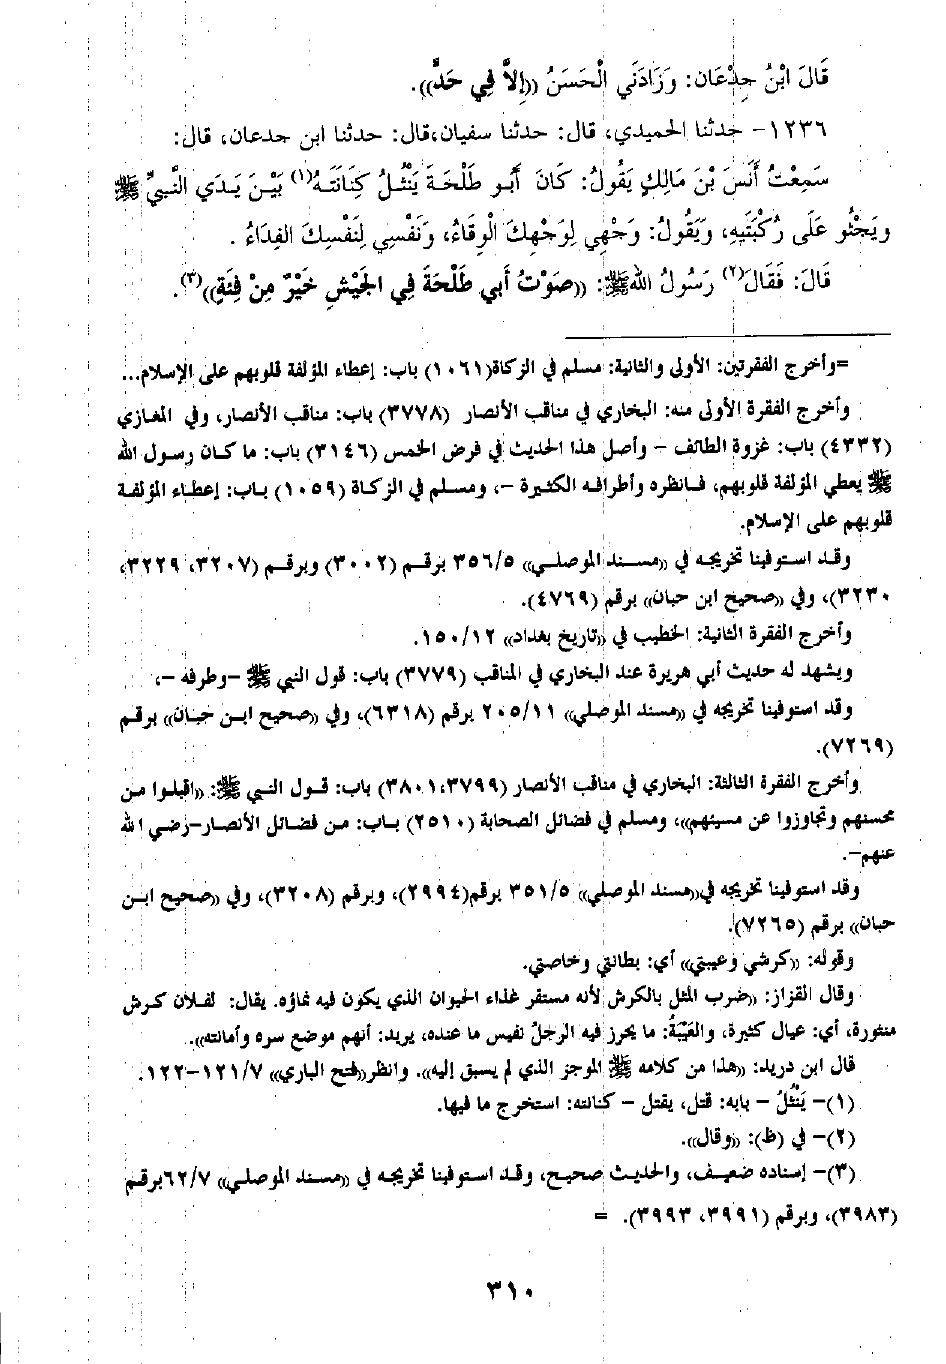 قَالَ ابْنُ جِدْعَان: وَزَادَنَي الْحَسَنُ ((إِلاَّ فِي حَدٍّ)).
١٢٣٦- حدثنا الحميدي، قال: حدثنا سفيان،قال: حدثنا ابن جدعان، قال:
سَمِعْتُ أَنَسَ بْنَ مَالِكٍ يَقُولُ: كَانَ أَبُو طَلْحَةَ يَنْثُلُ كِنَانَتَهُ(١) بَيْنَ يَدَي النَّبِيِّ ﷺ
وَيَجْثُو عَلَى رُكْبَتَيهِ، وَيَقُولُ: وَجْهِي لِوَجْهِكَ الْوِقَاءُ، وَنَفْسِي لِنَفْسِكَ الفِدَاءُ .
قَالَ: فَقَالَ(٢) رَسُولُ اللهﷺ: ((صَوْتُ أَبي طَلْحَةَ فِي الجَيْشِ خَيْرٌ مِنْ فِئَةٍ))(٣).
=وأخرج الفقرتين: الأولى والثانية: مسلم في الزكاة(١٠٦١) باب: إعطاء المؤلفة قلوبهم على الإسلام...
وأخرج الفقرة الأولى منه: البخاري في مناقب الأنصار (٣٧٧٨) باب: مناقب الأنصار، وفي المغازي
(٤٣٣٢) باب: غزوة الطائف – وأصل هذا الحديث في فرض الخمس (٣١٤٦) باب: ما كان رسول الله
ﷺ يعطي المؤلفة قلوبهم، فانظره وأطرافه الكثيرة –، ومسلم في الزكاة (١٠٥٩) باب: إعطاء المؤلفة
قلوبهم على الإسلام.
وقد استوفينا تخريجه في ((مسند الموصلي)) ٣٥٦/٥ برقم (٣٠٠٢) وبرقم (٣٢٠٧، ٣٢٢٩،
٣٢٣٠)، وفي ((صحيح ابن حبان)) برقم (٤٧٦٩).
وأخرج الفقرة الثانية: الخطيب في ((تاريخ بغداد)) ١٥٠/١٢.
ويشهد له حديث أبي هريرة عند البخاري في المناقب (٣٧٧٩) باب: قول النبي ﷺ –وطرفه –،
وقد استوفينا تخريجه في ((مسند الموصلي)) ٢٠٥/١١ برقم (٦٣١٨)، وفي ((صحيح ابن حبان)) برقم
(٧٢٦٩).
وأخرج الفقرة الثالثة: البخاري في مناقب الأنصار (٣٨٠١،٣٧٩٩) باب: قول النبي ﷺ: ((اقبلوا من
محسنهم وتجاوزوا عن مسيئهم))، ومسلم في فضائل الصحابة (٢٥١٠) باب: من فضائل الأنصار–رضي الله
عنهم–.
وقد استوفينا تخريجه في((مسند الموصلي)) ٣٥١/٥ برقم(٢٩٩٤)، وبرقم (٣٢٠٨)، وفي ((صحيح ابن
حبان)) برقم (٧٢٦٥).
وقوله: ((كرشي وعيبتي)) أي: بطانتي وخاصتي.
وقال القزاز: ((ضرب المثل بالكرش لأنه مستقر غذاء الحيوان الذي يكون فيه نماؤه. يقال: لفلان كرش
منثورة، أي: عيال كثيرة، والعَيْبَةُ: ما يحرز فيه الرجلُ نفيس ما عنده، يريد: أنهم موضع سره وأمانته)).
قال ابن دريد: ((هذا من كلامه ﷺ الموجز الذي لم يسبق إليه)). وانظر((فتح الباري)) ١٢١/٧–١٢٢.
(١)– يَنْثُلُ – بابه: قتل، يقتل – كنانته: استخرج ما فيها.
(٢)– في (ظ): ((وقال)).
(٣)– إسناده ضعيف، والحديث صحيح، وقد استوفينا تخريجه في ((مسند الموصلي)) ٦٢/٧برقم
(٣٩٨٣)، وبرقم (٣٩٩١، ٣٩٩٣). =
٣١٠